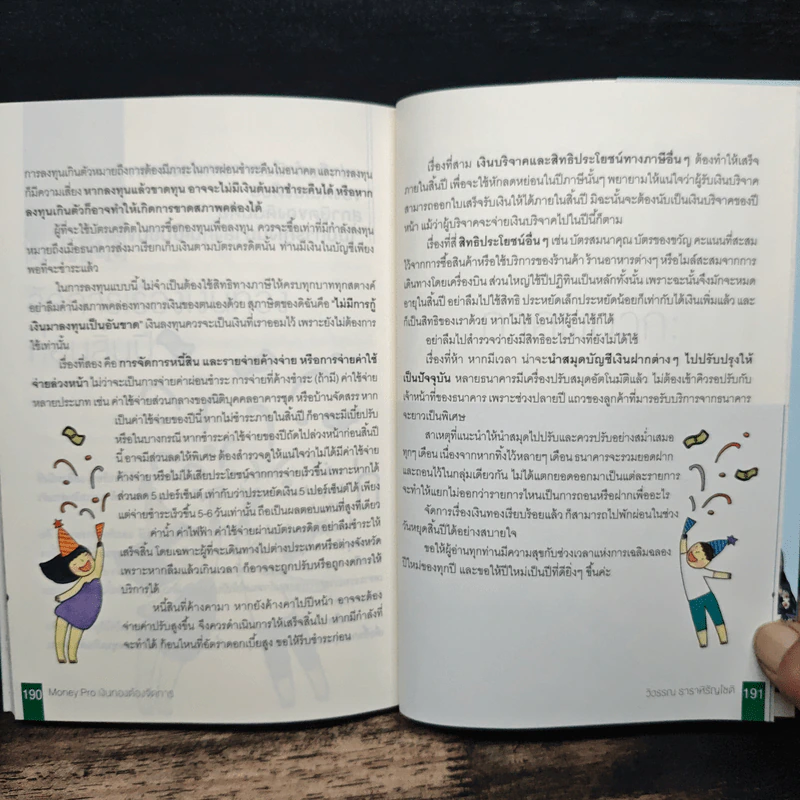 การลงทุนเกินตัวหมายถึงการต้องมีภาระในการผ่อนชำระคืนในอนาคต และการลงทุน
ก็มีความเสี่ยง หากลงทุนแล้วขาดทุน อาจจะไม่มีเงินต้นมาชำระคืนได้ หรือหาก
ลงทุนเกินตัวก็อาจทำให้เกิดการขาดสภาพคล่องได้
ผู้ที่จะใช้บัตรเครดิตในการซื้อกองทุนเพื่อลงทุน ควรจะซื้อเท่าที่มีกำลังลงทุน
หมายถึงเมื่อธนาคารส่งมาเรียกเก็บเงินตามบัตรเครดิตนั้น ท่านมีเงินในบัญชีเพียง
พอที่จะชำระแล้ว
ในการลงทุนแบบนี้ ไม่จำเป็นต้องใช้สิทธิทางภาษีให้ครบทุกบาททุกสตางค์
อย่าลืมคำนึงสภาพคล่องทางการเงินของตนเองด้วย สุภาษิตของดิฉันคือ "ไม่มีการกู้
เงินมาลงทุนเป็นอันขาด" เงินลงทุนควรจะเป็นเงินที่เราออมไว้ เพราะยังไม่ต้องการ
ใช้เท่านั้น
เรื่องที่สอง คือ การจัดการหนี้สิน และรายจ่ายค้างจ่าย หรือการจ่ายค่าใช้
จ่ายล่วงหน้า ไม่ว่าจะเป็นการจ่ายค่าผ่อนชำระ การจ่ายที่ค้างชำระ (ถ้ามี) ค่าใช้จ่าย
หลายประเภท เช่น ค่าใช้จ่ายส่วนกลางของนิติบุคคลอาคารชุด หรือบ้านจัดสรร หาก
เป็นค่าใช้จ่ายของปีนี้ หากไม่ชำระภายในสิ้นปี ก็อาจจะมีเบี้ยปรับ
หรือในบางกรณี หากชำระค่าใช้จ่ายของปีถัดไปล่วงหน้าก่อนสิ้นปี
นี้ อาจมีส่วนลดให้พิเศษ ต้องสำรวจดูให้แน่ใจว่าไม่ได้มีค่าใช้จ่าย
ค้างจ่าย หรือไม่ได้เสียประโยชน์จากการจ่ายเร็วขึ้น เพราะหากได้
ส่วนลด 5 เปอร์เซ็นต์ เท่ากับว่าประหยัดเงิน 5 เปอร์เซ็นต์ได้ เพียง
แต่จ่ายชำระเร็วขึ้น 5-6 วันเท่านั้น ถือเป็นผลตอบแทนที่สูงทีเดียว
ค่าน้ำ ค่าไฟฟ้า ค่าใช้จ่ายผ่านบัตรเครดิต อย่าลืมชำระให้
เสร็จสิ้น โดยเฉพาะผู้ที่จะเดินทางไปต่างประเทศหรือต่างจังหวัด
เพราะหากลืมแล้วเกินเวลา ก็อาจจะถูกปรับหรือถูกงดการให้
บริการได้
หนี้สินที่ค้างคามา หากยังค้างคาไปปีหน้า อาจจะต้อง
จ่ายค่าปรับสูงขึ้น จึงควรดำเนินการให้เสร็จสิ้นไป หากมีกำลังที่
จะทำได้ ก้อนไหนที่อัตราดอกเบี้ยสูง ขอให้รีบชำระก่อน
190 Money Pro เงินทองต้องจัดการ
เรื่องที่สาม เงินบริจาคและสิทธิประโยชน์ทางภาษีอื่นๆ ต้องทำให้เสร็จ
ภายในสิ้นปี เพื่อจะใช้หักลดหย่อนในปีภาษีนั้นๆ พยายามให้แน่ใจว่าผู้รับเงินบริจาค
สามารถออกใบเสร็จรับเงินให้ได้ภายในสิ้นปี มิฉะนั้นจะต้องนับเป็นเงินบริจาคของปี
หน้า แม้ว่าผู้บริจาคจะจ่ายเงินบริจาคไปในปีนี้ก็ตาม
เรื่องที่สี่ สิทธิประโยชน์อื่นๆ เช่น บัตรสมนาคุณ บัตรของขวัญ คะแนนที่สะสม
ไว้จากการซื้อสินค้าหรือใช้บริการของร้านค้า ร้านอาหารต่างๆ หรือไมล์สะสมจากการ
เดินทางโดยเครื่องบิน ส่วนใหญ่ใช้ปีปฏิทินเป็นหลักทั้งนั้น เพราะฉะนั้นจึงมักจะหมด
อายุในสิ้นปี อย่าลืมไปใช้สิทธิ ประหยัดเล็กประหยัดน้อยก็เท่ากับได้เงินเพิ่มแล้ว และ
ก็เป็นสิทธิของเราด้วย หากไม่ใช้ โอนให้ผู้อื่นใช้ก็ได้
อย่าลืมไปสำรวจว่ายังมีสิทธิอะไรบ้างที่ยังไม่ได้ใช้
เรื่องที่ห้า หากมีเวลา น่าจะนำสมุดบัญชีเงินฝากต่างๆ ไปปรับปรุงให้
เป็นปัจจุบัน หลายธนาคารมีเครื่องปรับสมุดอัตโนมัติแล้ว ไม่ต้องเข้าคิวรอปรับกับ
เจ้าหน้าที่ของธนาคาร เพราะช่วงปลายปี แถวของลูกค้าที่มารอรับบริการจากธนาคาร
จะยาวเป็นพิเศษ
สาเหตุที่แนะนำให้นำสมุดไปปรับและควรปรับอย่างสม่ำเสมอ
ทุกๆ เดือน เนื่องจากหากทิ้งไว้หลายๆ เดือน ธนาคารจะรวมยอดฝาก
และถอนไว้ในกลุ่มเดียวกัน ไม่ได้แตกยอดออกมาเป็นแต่ละรายการ
จะทำให้แยกไม่ออกว่ารายการไหนเป็นการถอนหรือฝากเพื่ออะไร
จัดการเรื่องเงินทองเรียบร้อยแล้ว ก็สามารถไปพักผ่อนในช่วง
วันหยุดสิ้นปีได้อย่างสบายใจ
ขอให้ผู้อ่านทุกท่านมีความสุขกับช่วงเวลาแห่งการเฉลิมฉลอง
ปีใหม่ของทุกปี และขอให้ปีใหม่เป็นปีที่ดียิ่งๆ ขึ้นค่ะ
วิวรรณ ธาราหิรัญโชติ 191